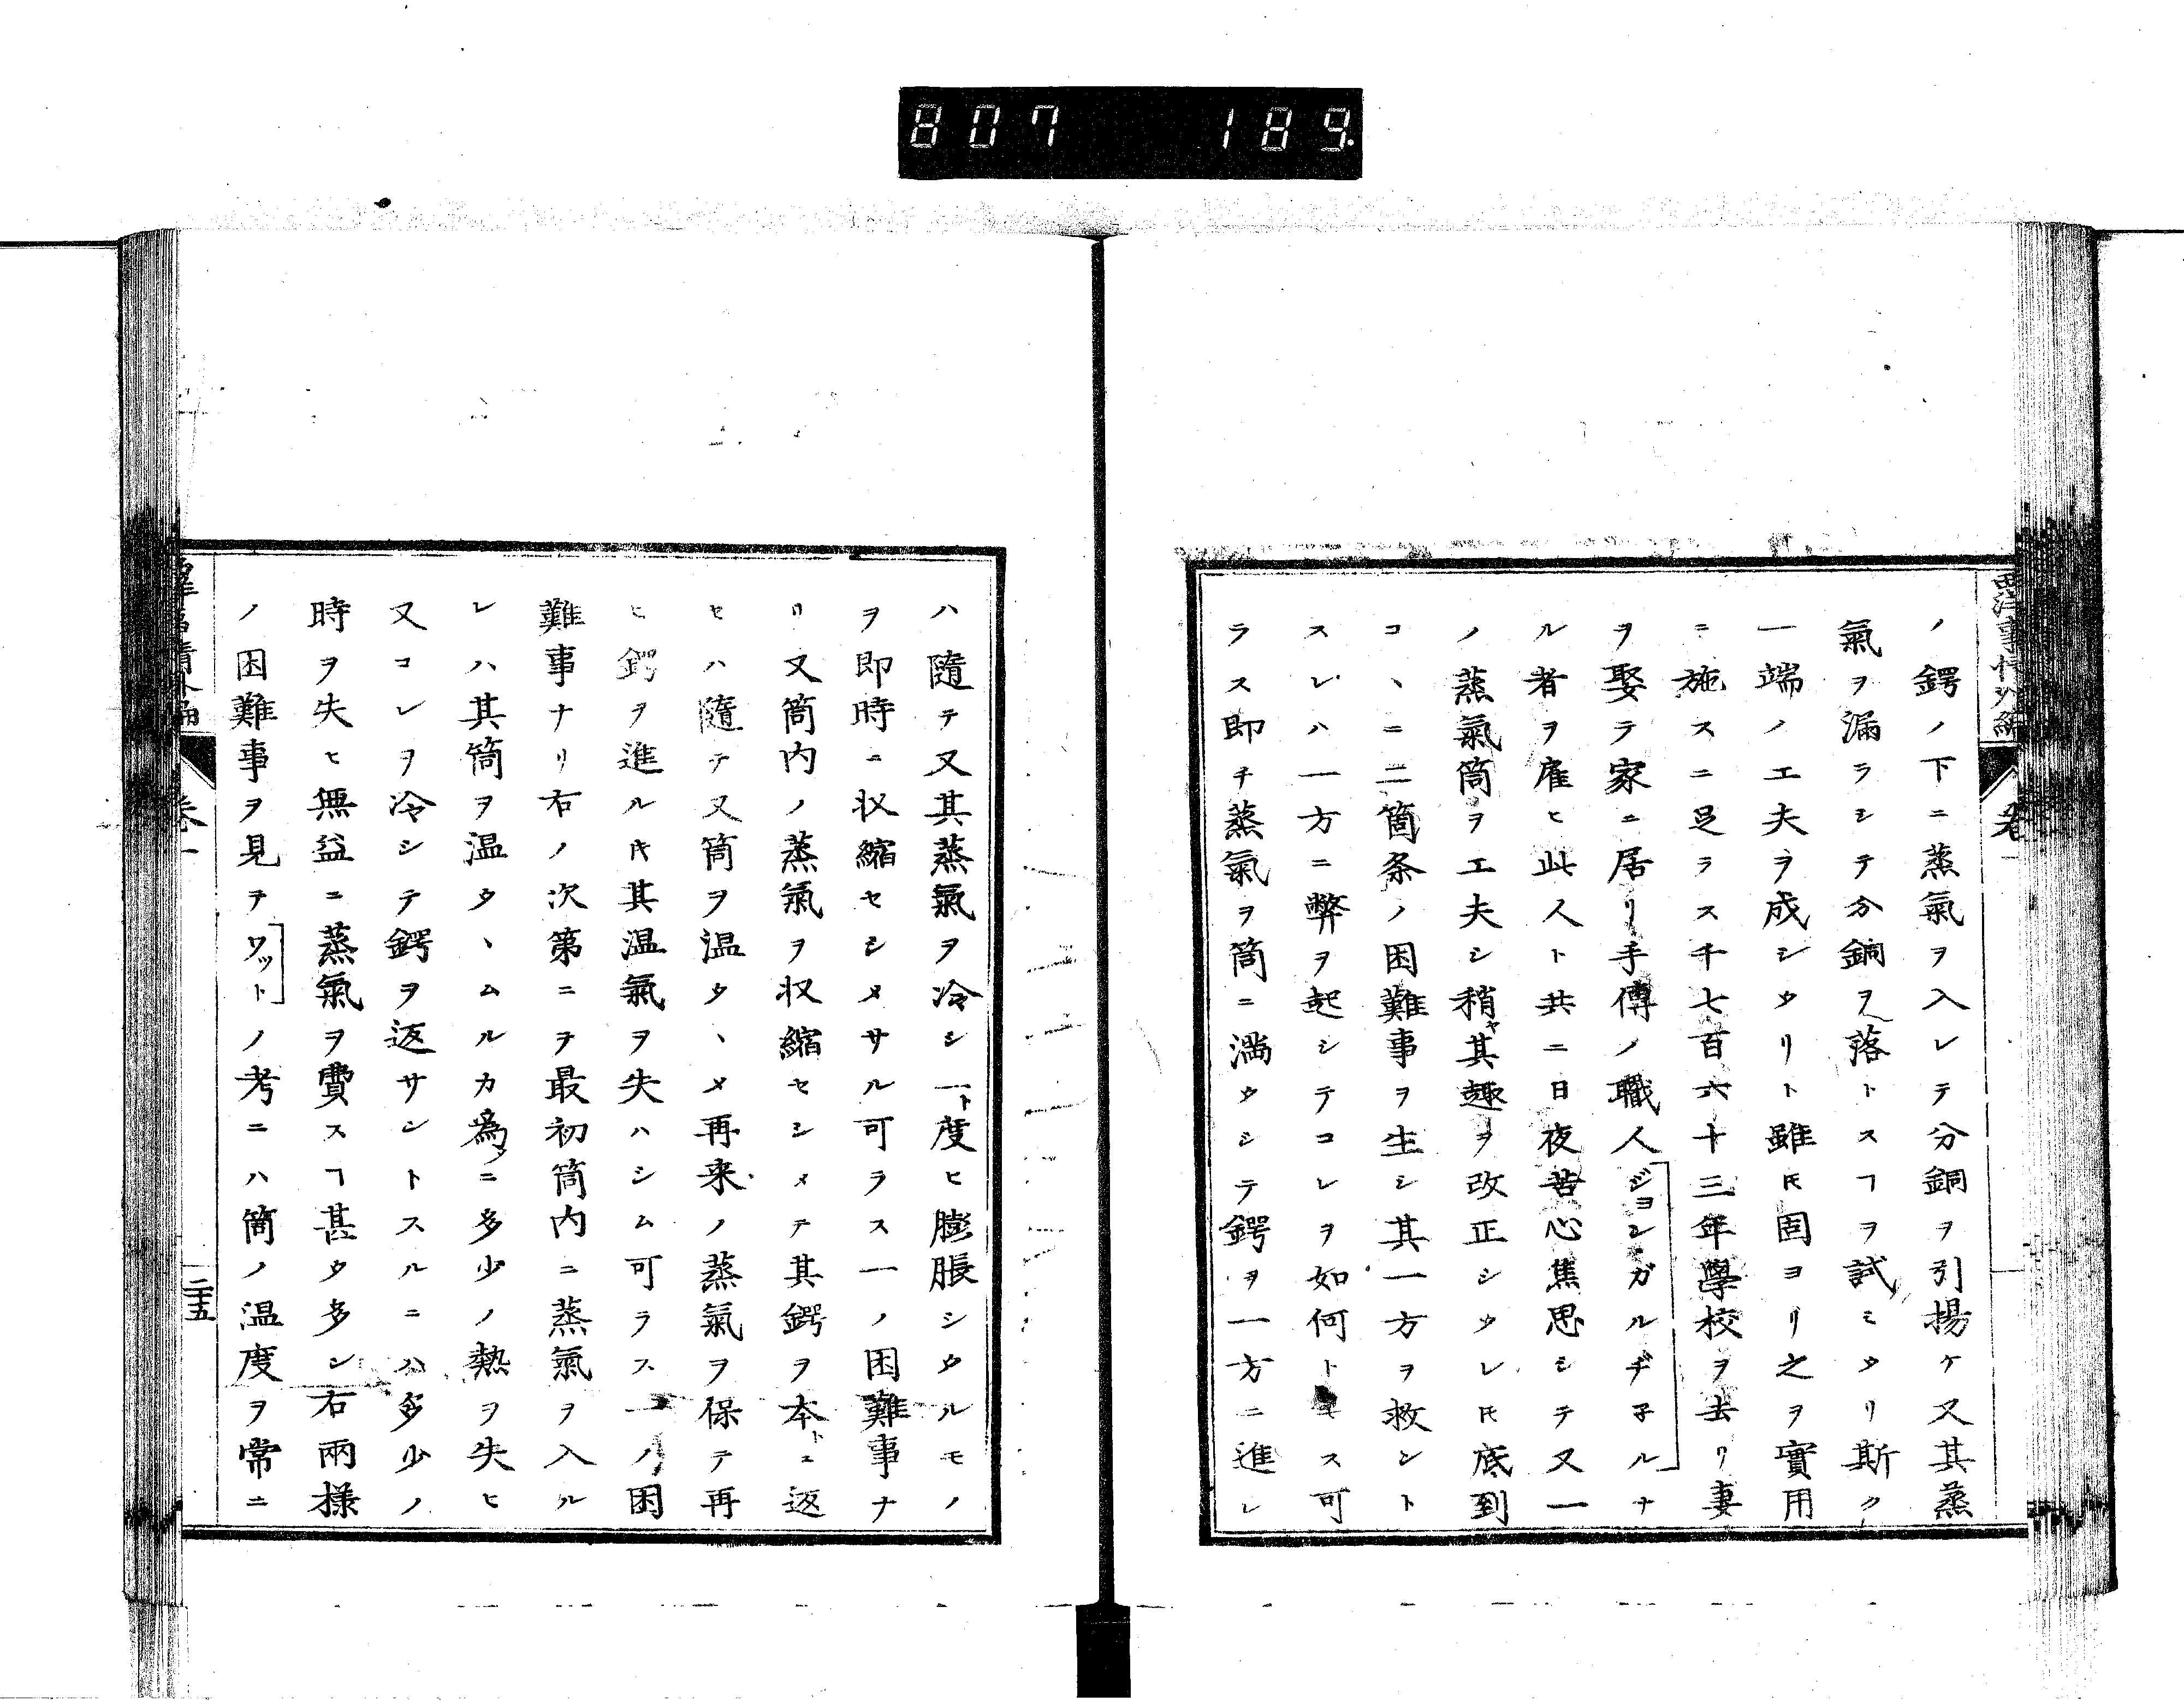 807 189.
西洋事情外編 卷一
ノ鍔ノ下ニ蒸氣ヲ入レテ分銅ヲ引揚ケ又其蒸
氣ヲ漏ラシテ分銅ヲ落トスヿヲ試ミタリ斯ク
一端ノ工夫ヲ成シタリト雖𪜈固ヨリ之ヲ實用
ニ施スニ足ラス千七百六十三年學校ヲ去リ妻
ヲ娶ラ家ニ居リ手傳ノ職人ジョンガルヂ子ルナ
ル者ヲ雇ヒ此人ト共ニ日夜苦心焦思シテ又一
ノ蒸氣筒ヲ工夫シ稍ヤ其趣ヲ改正シタレ𪜈底到
コヽニ二箇条ノ困難事ヲ生シ其一方ヲ救ントスレハ
一方ニ弊ヲ起シテコレヲ如何トモス可
ラス即チ蒸氣ヲ筒ニ満タシテ鍔ヲ一方ニ進レ
ハ隨テ又其蒸氣ヲ冷シ一ト度ヒ膨脹シタルモノ
ヲ即時ニ収縮セシメサル可ラス一ノ困難事ナ
リ又筒内ノ蒸氣ヲ収縮セシメテ其鍔ヲ本トニ返
セハ隨テ又筒ヲ温タヽメ再来ノ蒸氣ヲ保テ再
ヒ鍔ヲ進ル𪜈其温氣ヲ失ハシム可ラス一ノ困
難事ナリ右ノ次第ニテ最初筒内ニ蒸氣ヲ入ル
レハ其筒ヲ温タヽムルカ為メニ多少ノ熱ヲ失ヒ
又コレヲ冷シテ鍔ヲ返サントスルニハ多少ノ
時ヲ失ヒ無益ニ蒸氣ヲ費スヿ甚タ多シ右兩様
ノ困難事ヲ見テワットノ考ニハ筒ノ温度ヲ常ニ
西洋事情外編 卷一 二十五